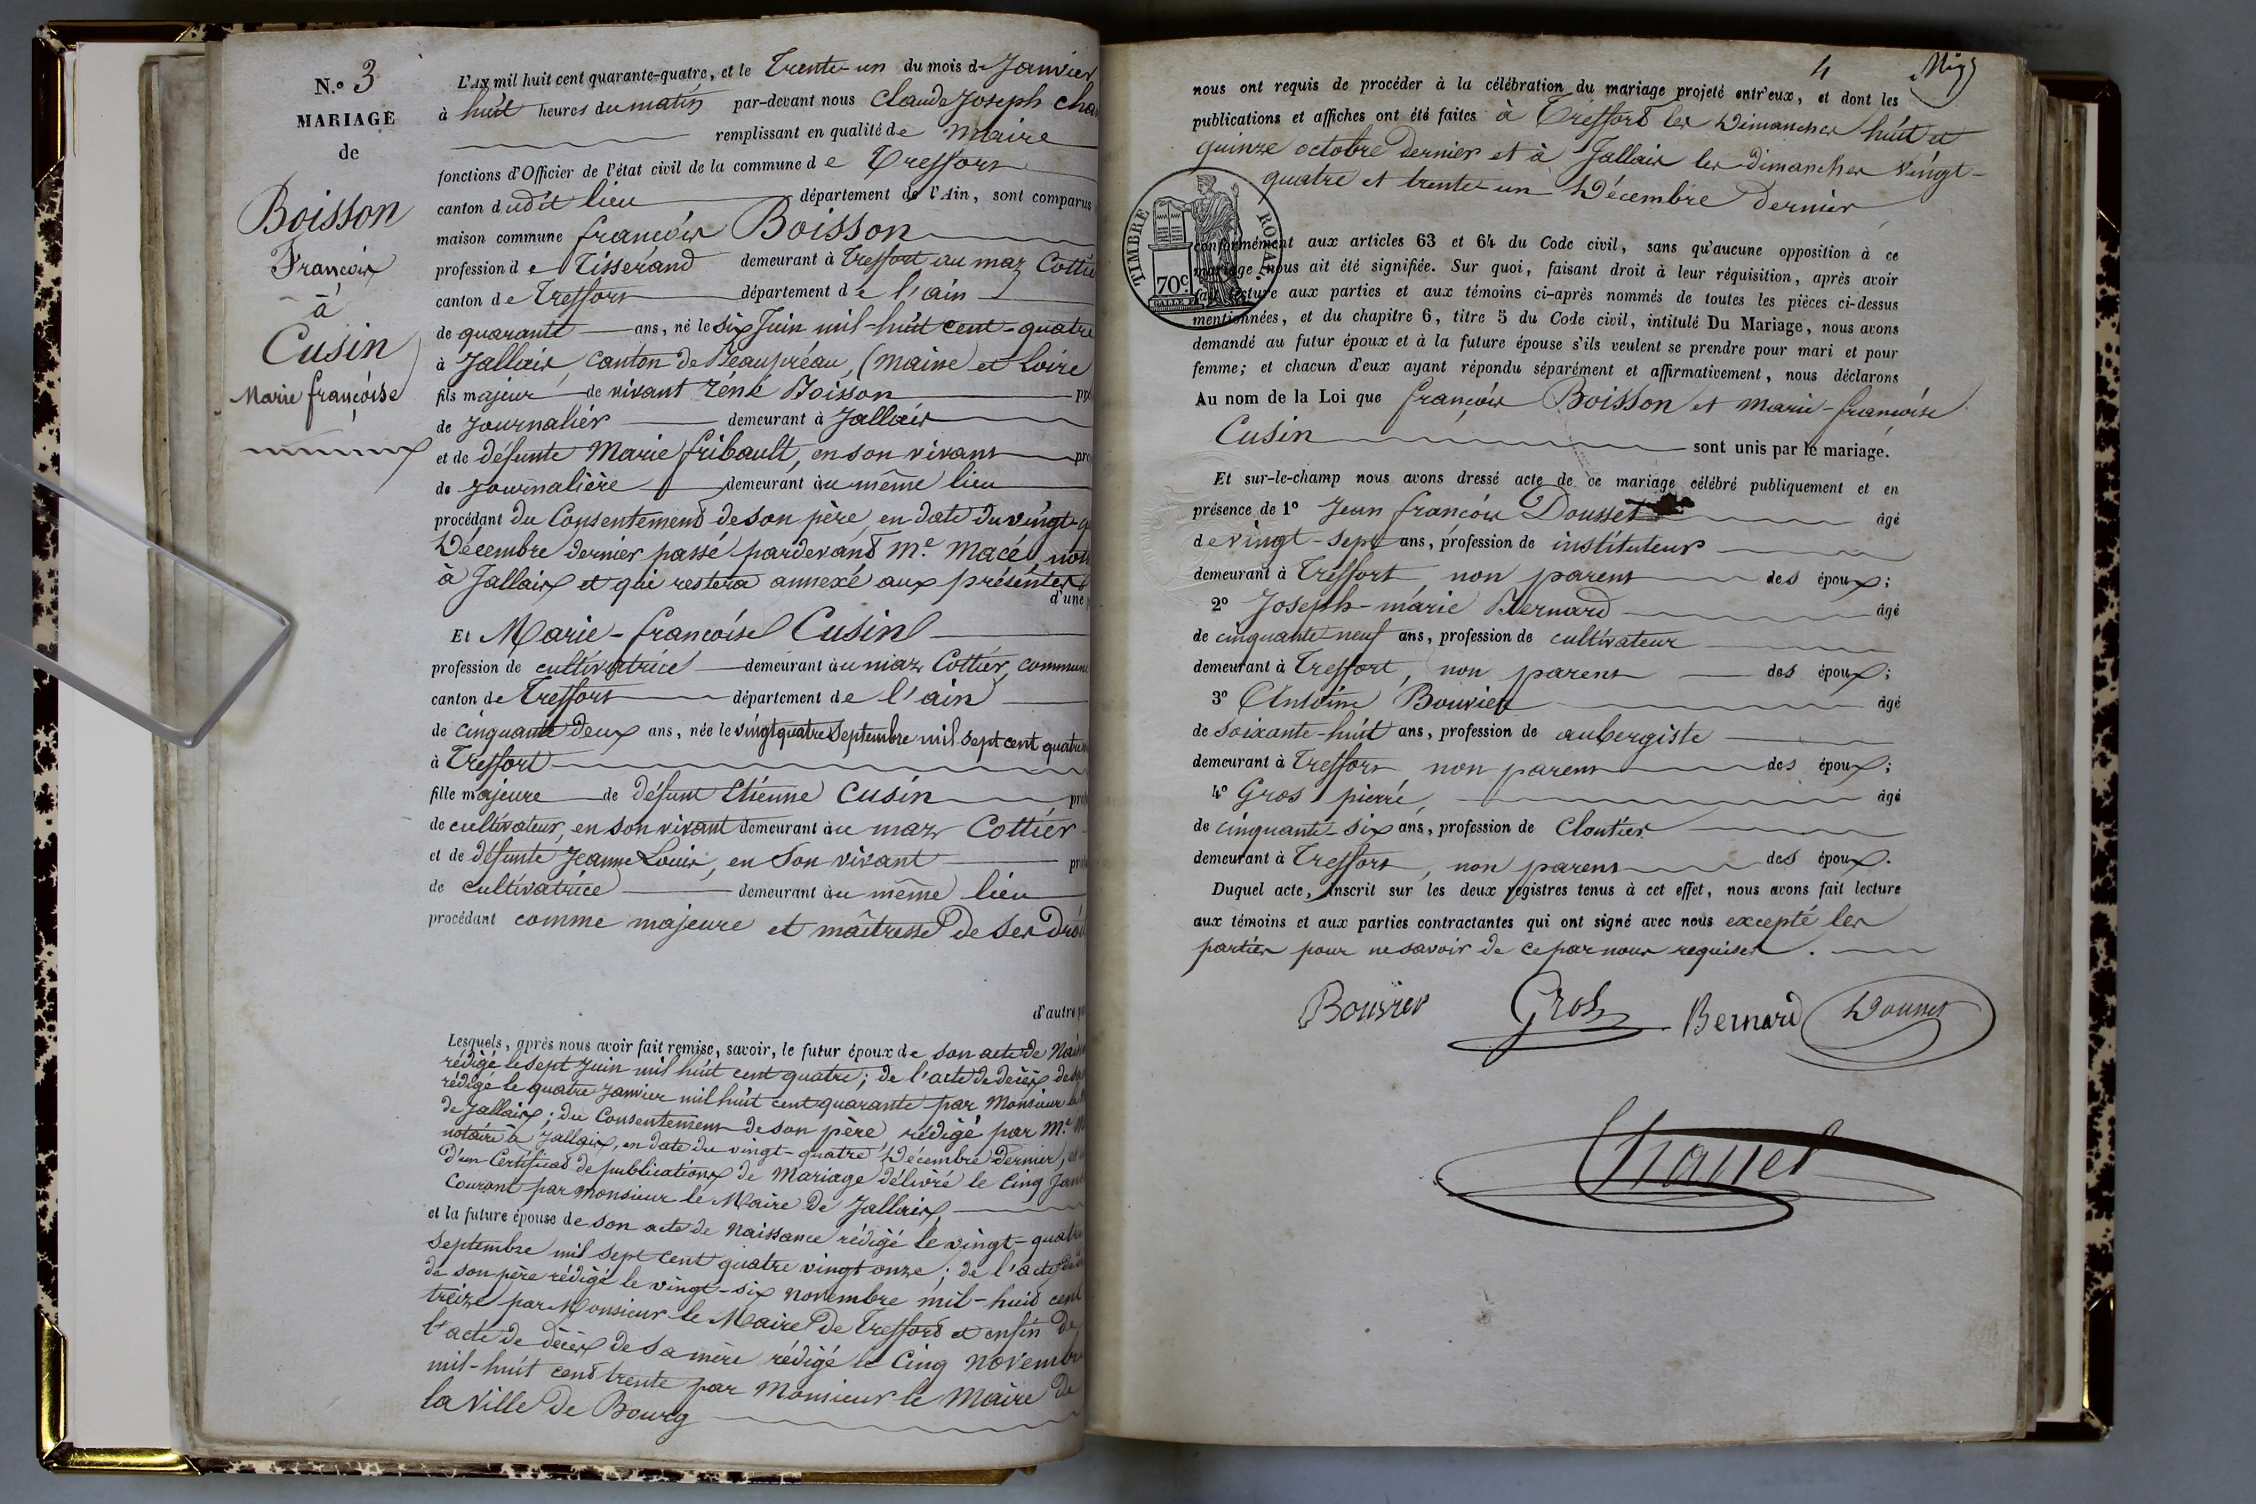 N.o 3
MARIAGE
de
Boisson
François
à
Cusin
Marie françoise
L'AN mil huit cent quarante-quatre, et le Trente-un du mois de Janvier
à huit heures du matin par-devant nous Claude Joseph
remplissant en qualité de Maire
fonctions d'Officier de l'état civil de la commune de Treffort
canton dudit lieu département de l'Ain, sont comparus
maison commune françois Boisson
profession de Tisserand demeurant à Treffort au maz
canton de Treffort département de l'ain
de quarante ans, né le six Juin mil-huit cent-quatre
à Jallais, canton de Beaupréau, (Maine et Loire
fils majeur de vivant Réné Boisson
de Journalier demeurant à Jallais
et de défunte Marie fribault, en son vivant
de Journalière demeurant au même lieu
procédant du Consentement de son père, en date du vingt-
Décembre dernier passé pardevant Me. Macé,
à Jallais et qui restera annexé aux présentes
d'une
Et Marie-françoise Cusin
profession de cultivatrice demeurant au maz Cottier, commune
canton de Treffort département de l'ain
de cinquante deux ans, née le vingt quatre Septembre mil sept cent
à Treffort
fille majeure de défunt Etienne Cusin
de cultivateur, en son vivant demeurant au maz Cottier
et de défunte Jeanne Louis, en son vivant
de cultivatrice demeurant au même lieu
procédant comme majeure et maîtresse de ses
d'autre
Lesquels, après nous avoir fait remise, savoir, le futur époux de son acte de
rédigé le sept Juin mil huit cent quatre; de l'acte de décès de
rédigé le quatre Janvier mil huit cent quarante par Monsieur
de Jallais; du Consentement de son père, rédigé par Me.
notaire à Jallais, en date du vingt-quatre Décembre dernier,
d'un Certificat de publications de Mariage délivré le cinq
Courant par Monsieur le Maire de Jallais
et la future épouse de son acte de Naissance rédigé le vingt-quatre
Septembre mil sept cent quatre vingt onze; de l'acte
de son père rédigé le vingt-six novembre mil-huit cent
treize par Monsieur le Maire de Treffort et enfin de
l'acte de décès de sa mère rédigé le Cinq novembre
mil-huit cent trente par Monsieur le Maire de
la Ville de Bourg
4
nous ont requis de procéder à la célébration du mariage projeté entr'eux, et dont les
publications et affiches ont été faites à Treffort les Dimanches huit et
quinze octobre dernier et à Jallais les dimanches vingt-
quatre et trente-un Décembre dernier
TIMBRE ROYAL.
70c.
conformément aux articles 63 et 64 du Code civil, sans qu'aucune opposition à ce
mariage nous ait été signifiée. Sur quoi, faisant droit à leur réquisition, après avoir
fait lecture aux parties et aux témoins ci-après nommés de toutes les pièces ci-dessus
mentionnées, et du chapitre 6, titre 5 du Code civil, intitulé Du Mariage, nous avons
demandé au futur époux et à la future épouse s'ils veulent se prendre pour mari et pour
femme; et chacun d'eux ayant répondu séparément et affirmativement, nous déclarons
Au nom de la Loi que françois Boisson et marie-françoise
Cusin sont unis par le mariage.
Et sur-le-champ nous avons dressé acte de ce mariage célébré publiquement et en
présence de 1o Jean françois Dousset âgé
de vingt-sept ans, profession de instituteur
demeurant à Treffort, non parent des époux;
2o Joseph-marie Bernard âgé
de cinquante-neuf ans, profession de cultivateur
demeurant à Treffort, non parent des époux;
3o Antoine Bouvier âgé
de soixante-huit ans, profession de aubergiste
demeurant à Treffort, non parent des époux;
4o Gros pierre, âgé
de cinquante-six ans, profession de Cloutier
demeurant à Treffort, non parent des époux.
Duquel acte, inscrit sur les deux registres tenus à cet effet, nous avons fait lecture
aux témoins et aux parties contractantes qui ont signé avec nous excepté les
parties pour ne savoir de ce par nous requises.
Bouvier Gros Bernard Dousset